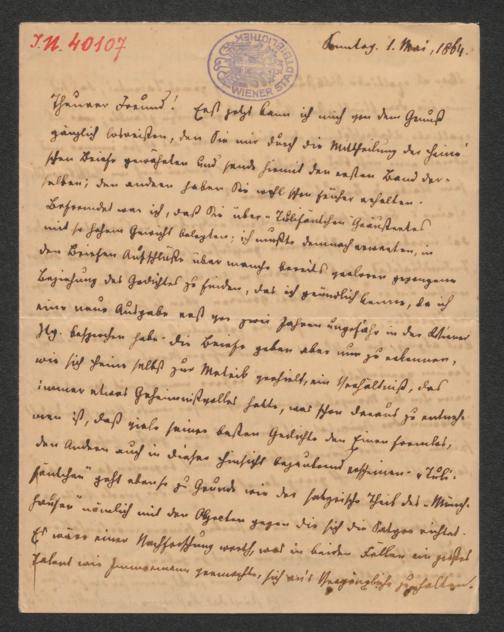 I.N. 40107
WIENER STADTBIBLIOTHEK
Sonntag. 1. Mai, 1864.
Theurer Freund! Erst jetzt kann ich mich von dem Genuß
gänzlich losreißen, den Sie mir durch die Mittheilung der Heine'
schen Briefe gewährten und sende hiermit den ersten Band der-
selben; den andern haben Sie wohl schon früher erhalten.
Befremdet war ich, daß Sie über „Tulifäntchen" Geäußertes
mit so hohem Gewicht belegten; ich mußte demnach erwarten, in
den Briefen Aufschlüße über manche bereits verloren gegangene
Beziehung des Gedichtes zu finden, das ich gründlich kenne, da ich
eine neue Ausgabe erst vor zwei Jahren ungefähr in der Wiener
Ztg. besprochen habe. Die Briefe geben aber nun zu erkennen,
wie sich Heine selbst zur Metrik verhielt, ein Verhältniß, das
immer etwas Geheimnißvolles hatte, was schon daraus zu entneh-
men ist, daß viele seiner besten Gedichte den Einen formlos,
den Andern auch in dieser Hinsicht bezaubernd erscheinen. „Tuli-
fäntchen" geht ebenso zu Grunde wie der satyrische Theil des „Münch-
hausen" nämlich mit den Objecten gegen die sich die Satyre richtet.
Es wäre einer Nachforschung werth, was in beiden Fällen ein großes
Talent wie Immermann vermochte, sich an's Vergängliche zu halten.